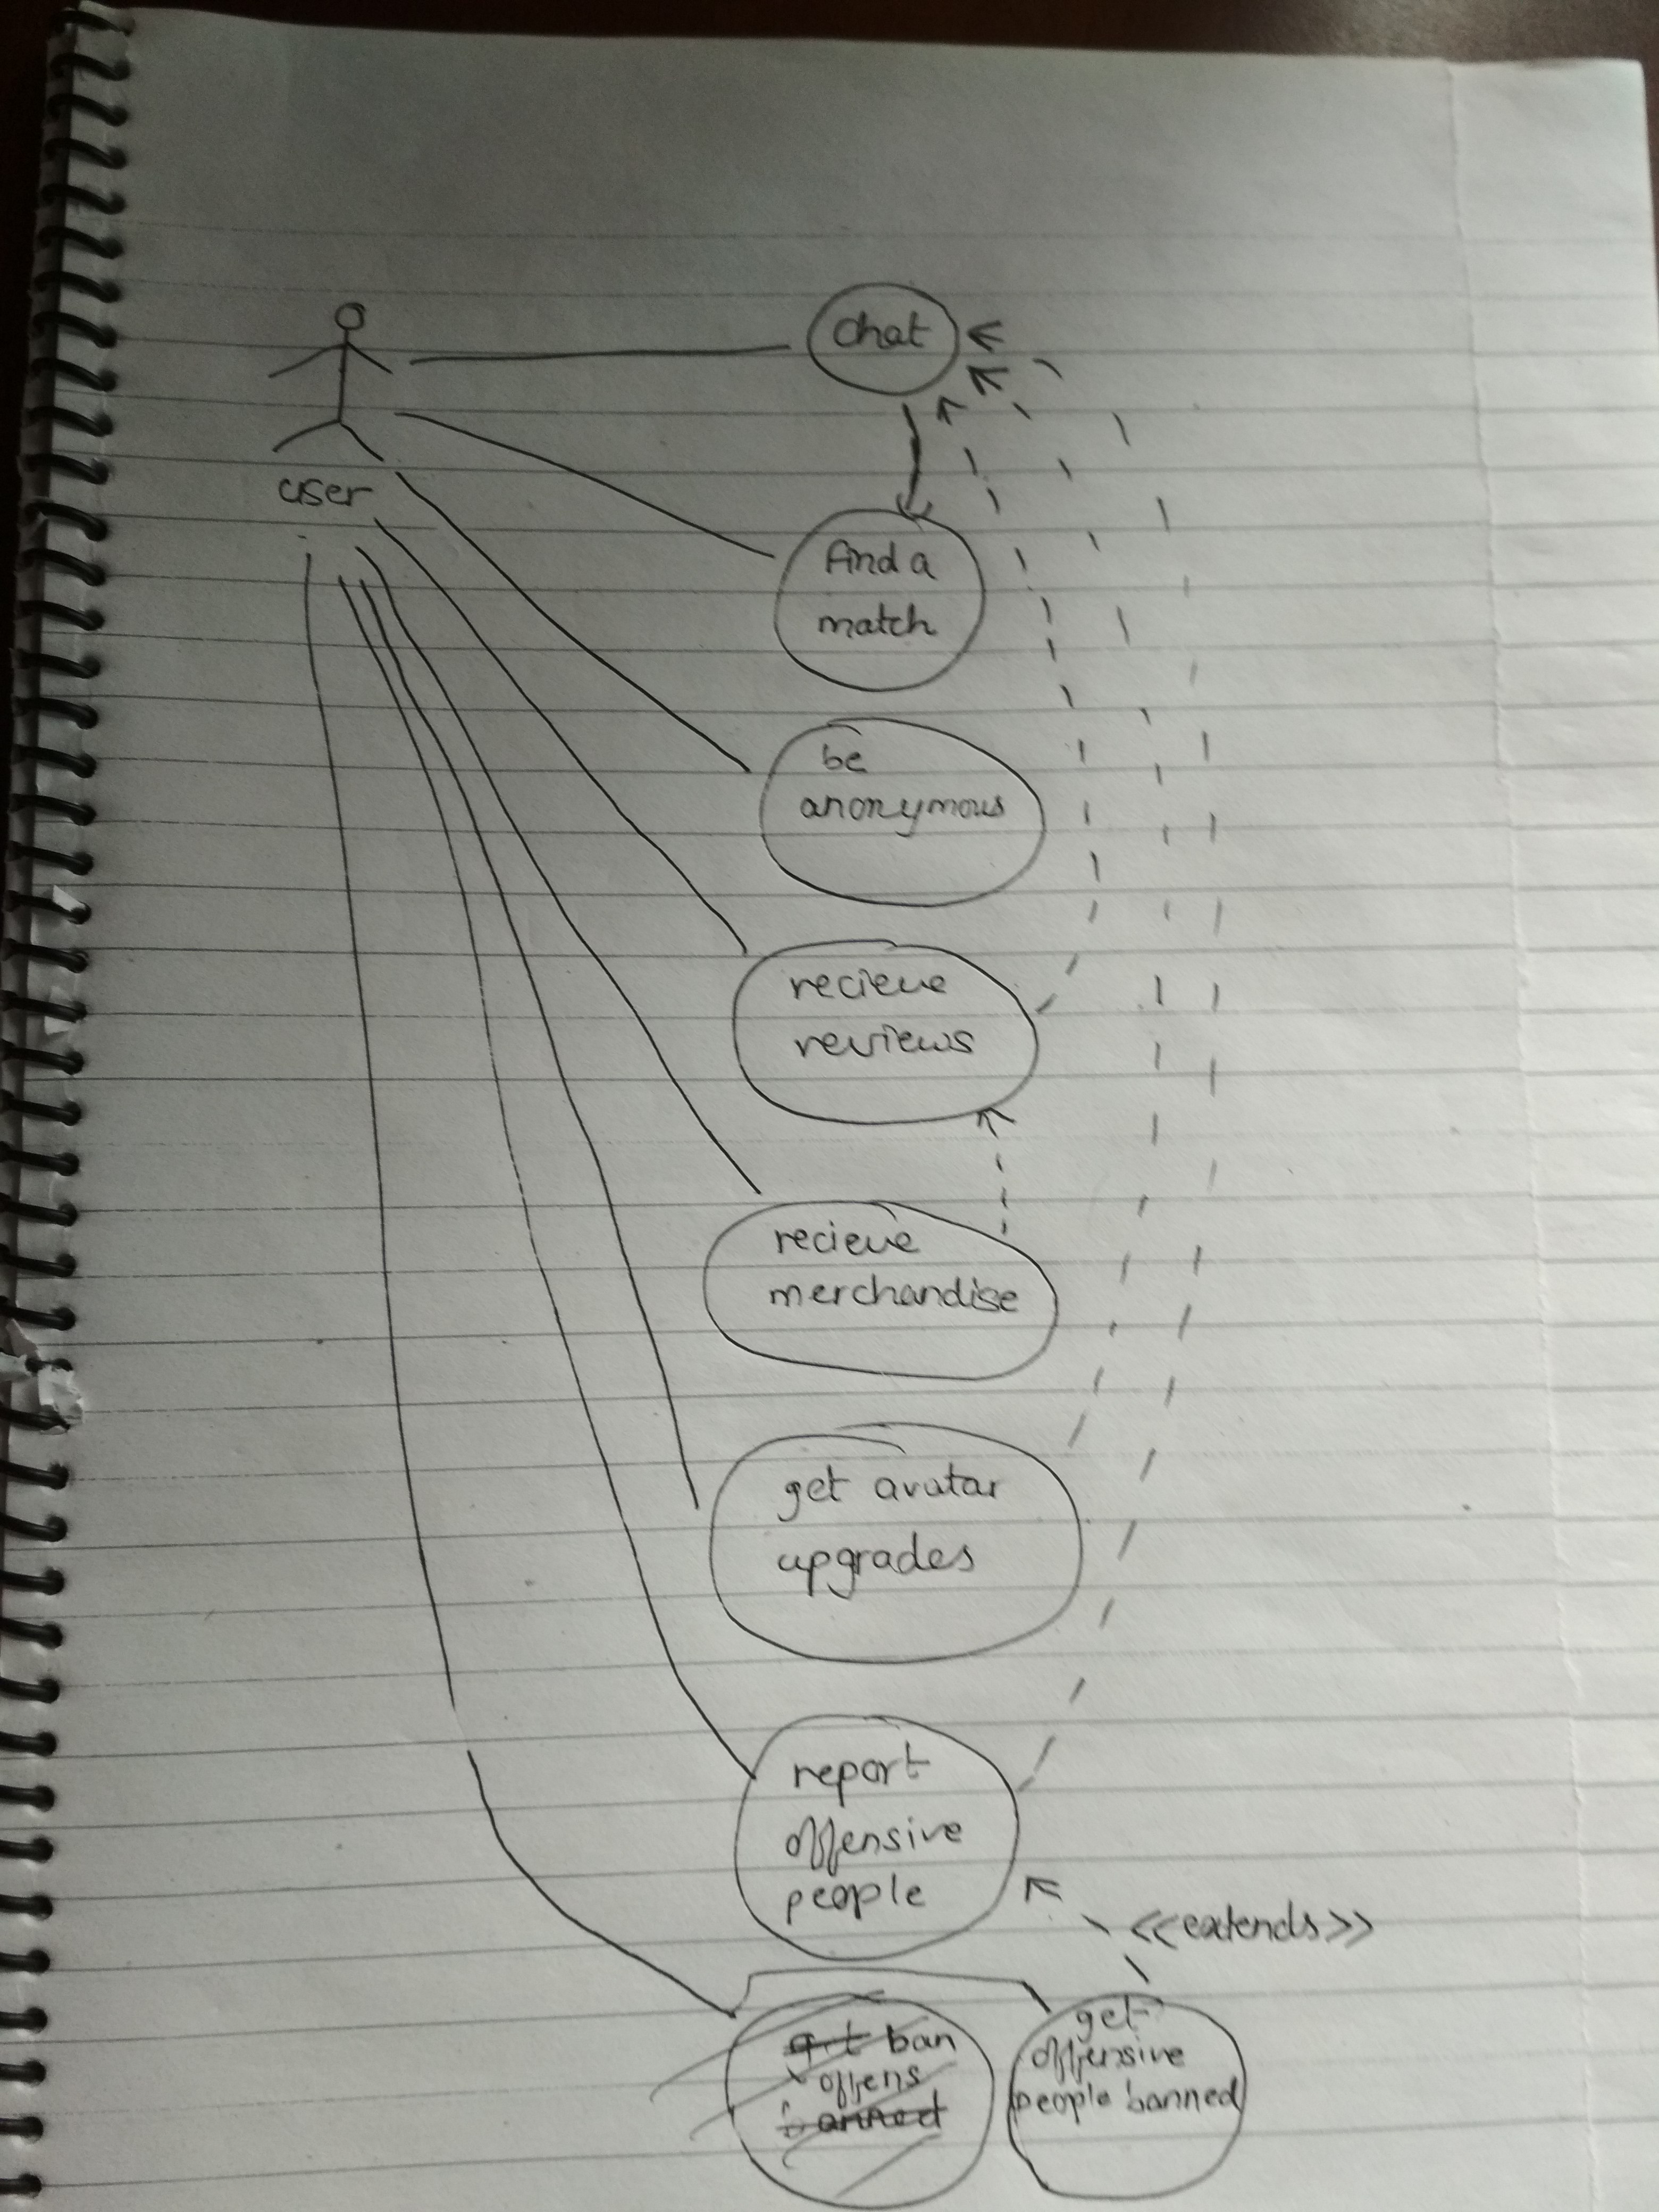 chat
user
find a
match
be
anonymous
recieve
reviews
recieve
merchandise
get avatar
upgrades
report
offensive
people
<<extends>>
get ban
offens
banned
get
offensive
people banned